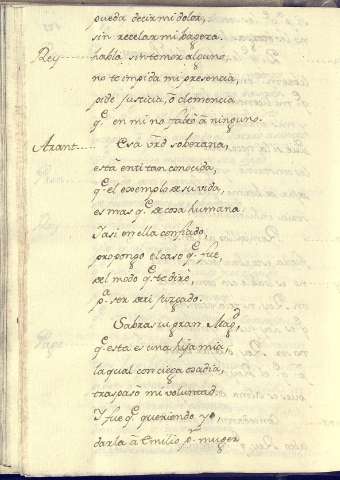 pueda decir mi dolor,
sin recelar mi bageza.
Rey...... habla sin temor alguno,
no te impida mi presencia,
pide justicia, ò clemencia
q.e en mi no faltò à ninguno.
Arant..... Esa vrd soberana,
està en ti tan conocida,
q.e el exemplo de su vida,
es mas q.e de cosa humana.
Y asi en ella confiado,
propongo el caso q.e fue,
del modo q.e te dirè,
p.a ser de ti juzgado.
Sabras tu gran Mag.d
q.e esta es una hija mia,
la qual con ciega osadia,
traspasò mi voluntad.
Y fue q.e queriendo yo,
darla à Emilio p.r muger